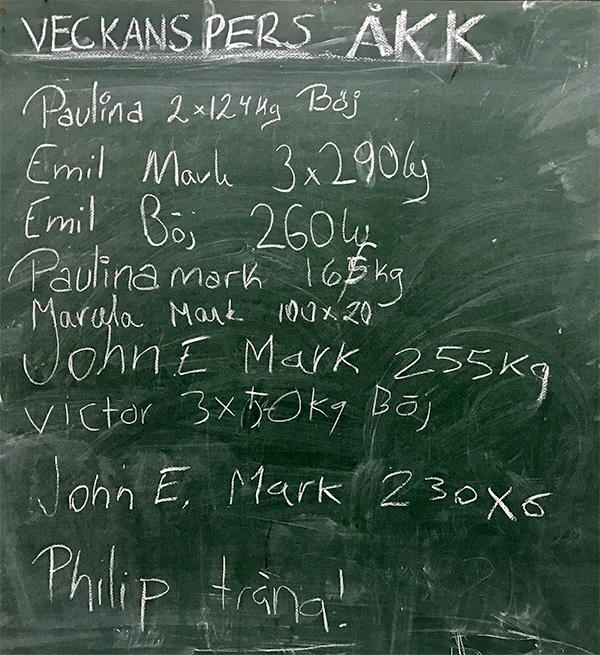 VECKANS PERS ÅKK
Paulina 2x124kg Böj
Emil Mark 3x290kg
Emil Böj 260kg
Paulina mark 165kg
Marcela Mark 100x20
John E Mark 255kg
Victor 3x kg Böj
John E. Mark 230x6
Philip träna!